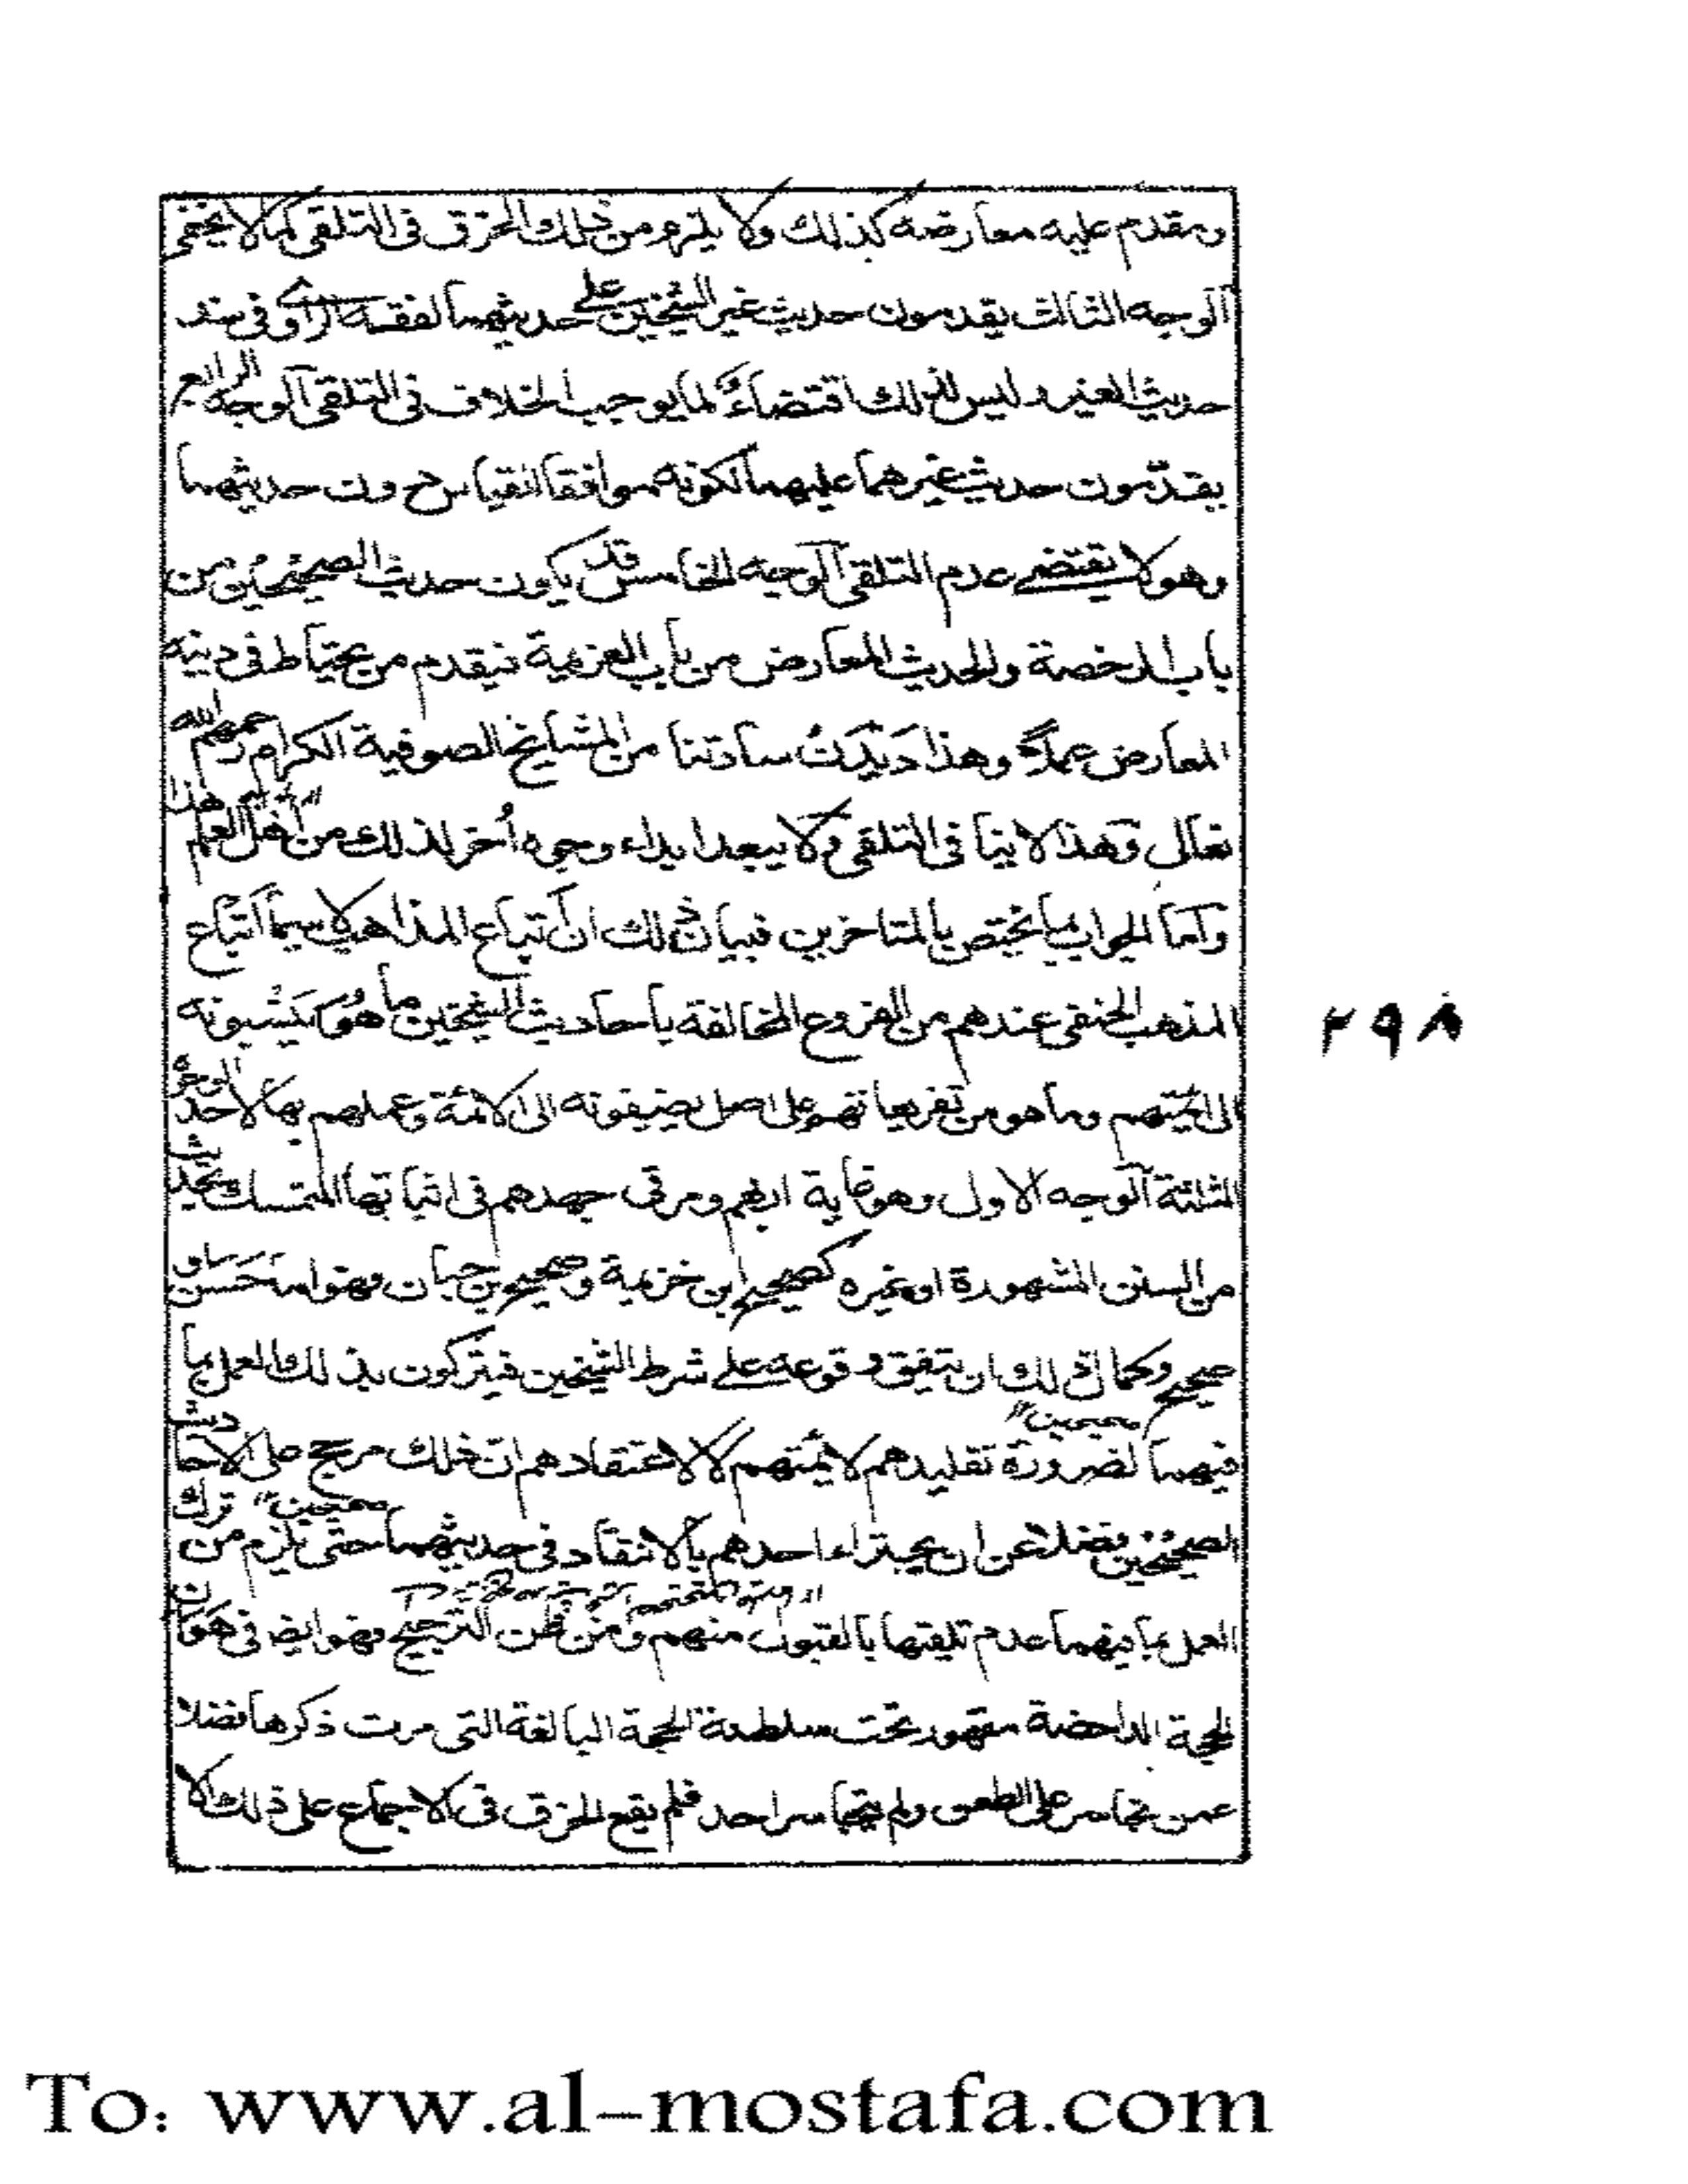 ويقدم عليه معارضه كذلك ولا يلزم من ذلك الخرق في التلقي كما لا يخفى
الوجه الثالث يقدمون حديث غير الشيخين على حديثهما لفقه الراوي في سند
حديث الغير وليس لذلك اقتضاء لما يوجب الخلاف في التلقي الوجه الرابع
يقدمون حديث غيرهما عليهما لكونه موافقا للقياس دون حديثهما
وهو لا يقتضي عدم التلقي الوجه الخامس قد يكون حديث الصحيحين من
باب الرخصة والحديث المعارض من باب العزيمة فيقدم من يحتاط في دينه
المعارض عملاً وهذا ديدن ساداتنا من المشايخ الصوفية الكرام رحمهم الله
تعالى وهذا لا ينافي التلقي ولا يبعد ابداء وجوه أخر لذلك من أهل العلم هذا
وأما الجواب بما يختص بالمتاخرين فبيان ذلك ان أتباع المذاهب لا سيما أتباع
المذهب الحنفي عندهم من الفروع المخالفة بأحاديث الشيخين ما هو ينسبونه
الى ائمتهم وما هو من تفريعاتهم على اصل يضيفونه الى الائمة وعملهم بها لاحد الوجوه
الثلثة الوجه الاول وهو غاية ومرقى جهدهم في اثباتها التمسك بحديث
من السنن المشهورة او غيره كصحيح ابن خزيمة وصحيح بن حبان وهو حسن او
صحيح وكمال ذلك ان يتفق وقوعه على شرط الشيخين فيتركون بذلك العمل بما
فيهما لضرورة تقليدهم لائمتهم لا لاعتقادهم ان ذلك مرجح على الاحاديث
الصحيحين فضلا عن ان يجتراء احدهم بالانتقاد في حديثهما حتى يلزم من ترك
العمل بما فيهما عدم تلقيها بالقبول منهم ومن ظن الترجيح فهو ايضا في هوان
الحجة الداحضة مقهور تحت سلطنة الحجة البالغة التي مرت ذكرها فضلا
عمن تجاسر على الطعن ولم يتجاسر احد فلم يقع الخرق في الاجماع على ذلك الا
٢٩٨
To: www.al-mostafa.com